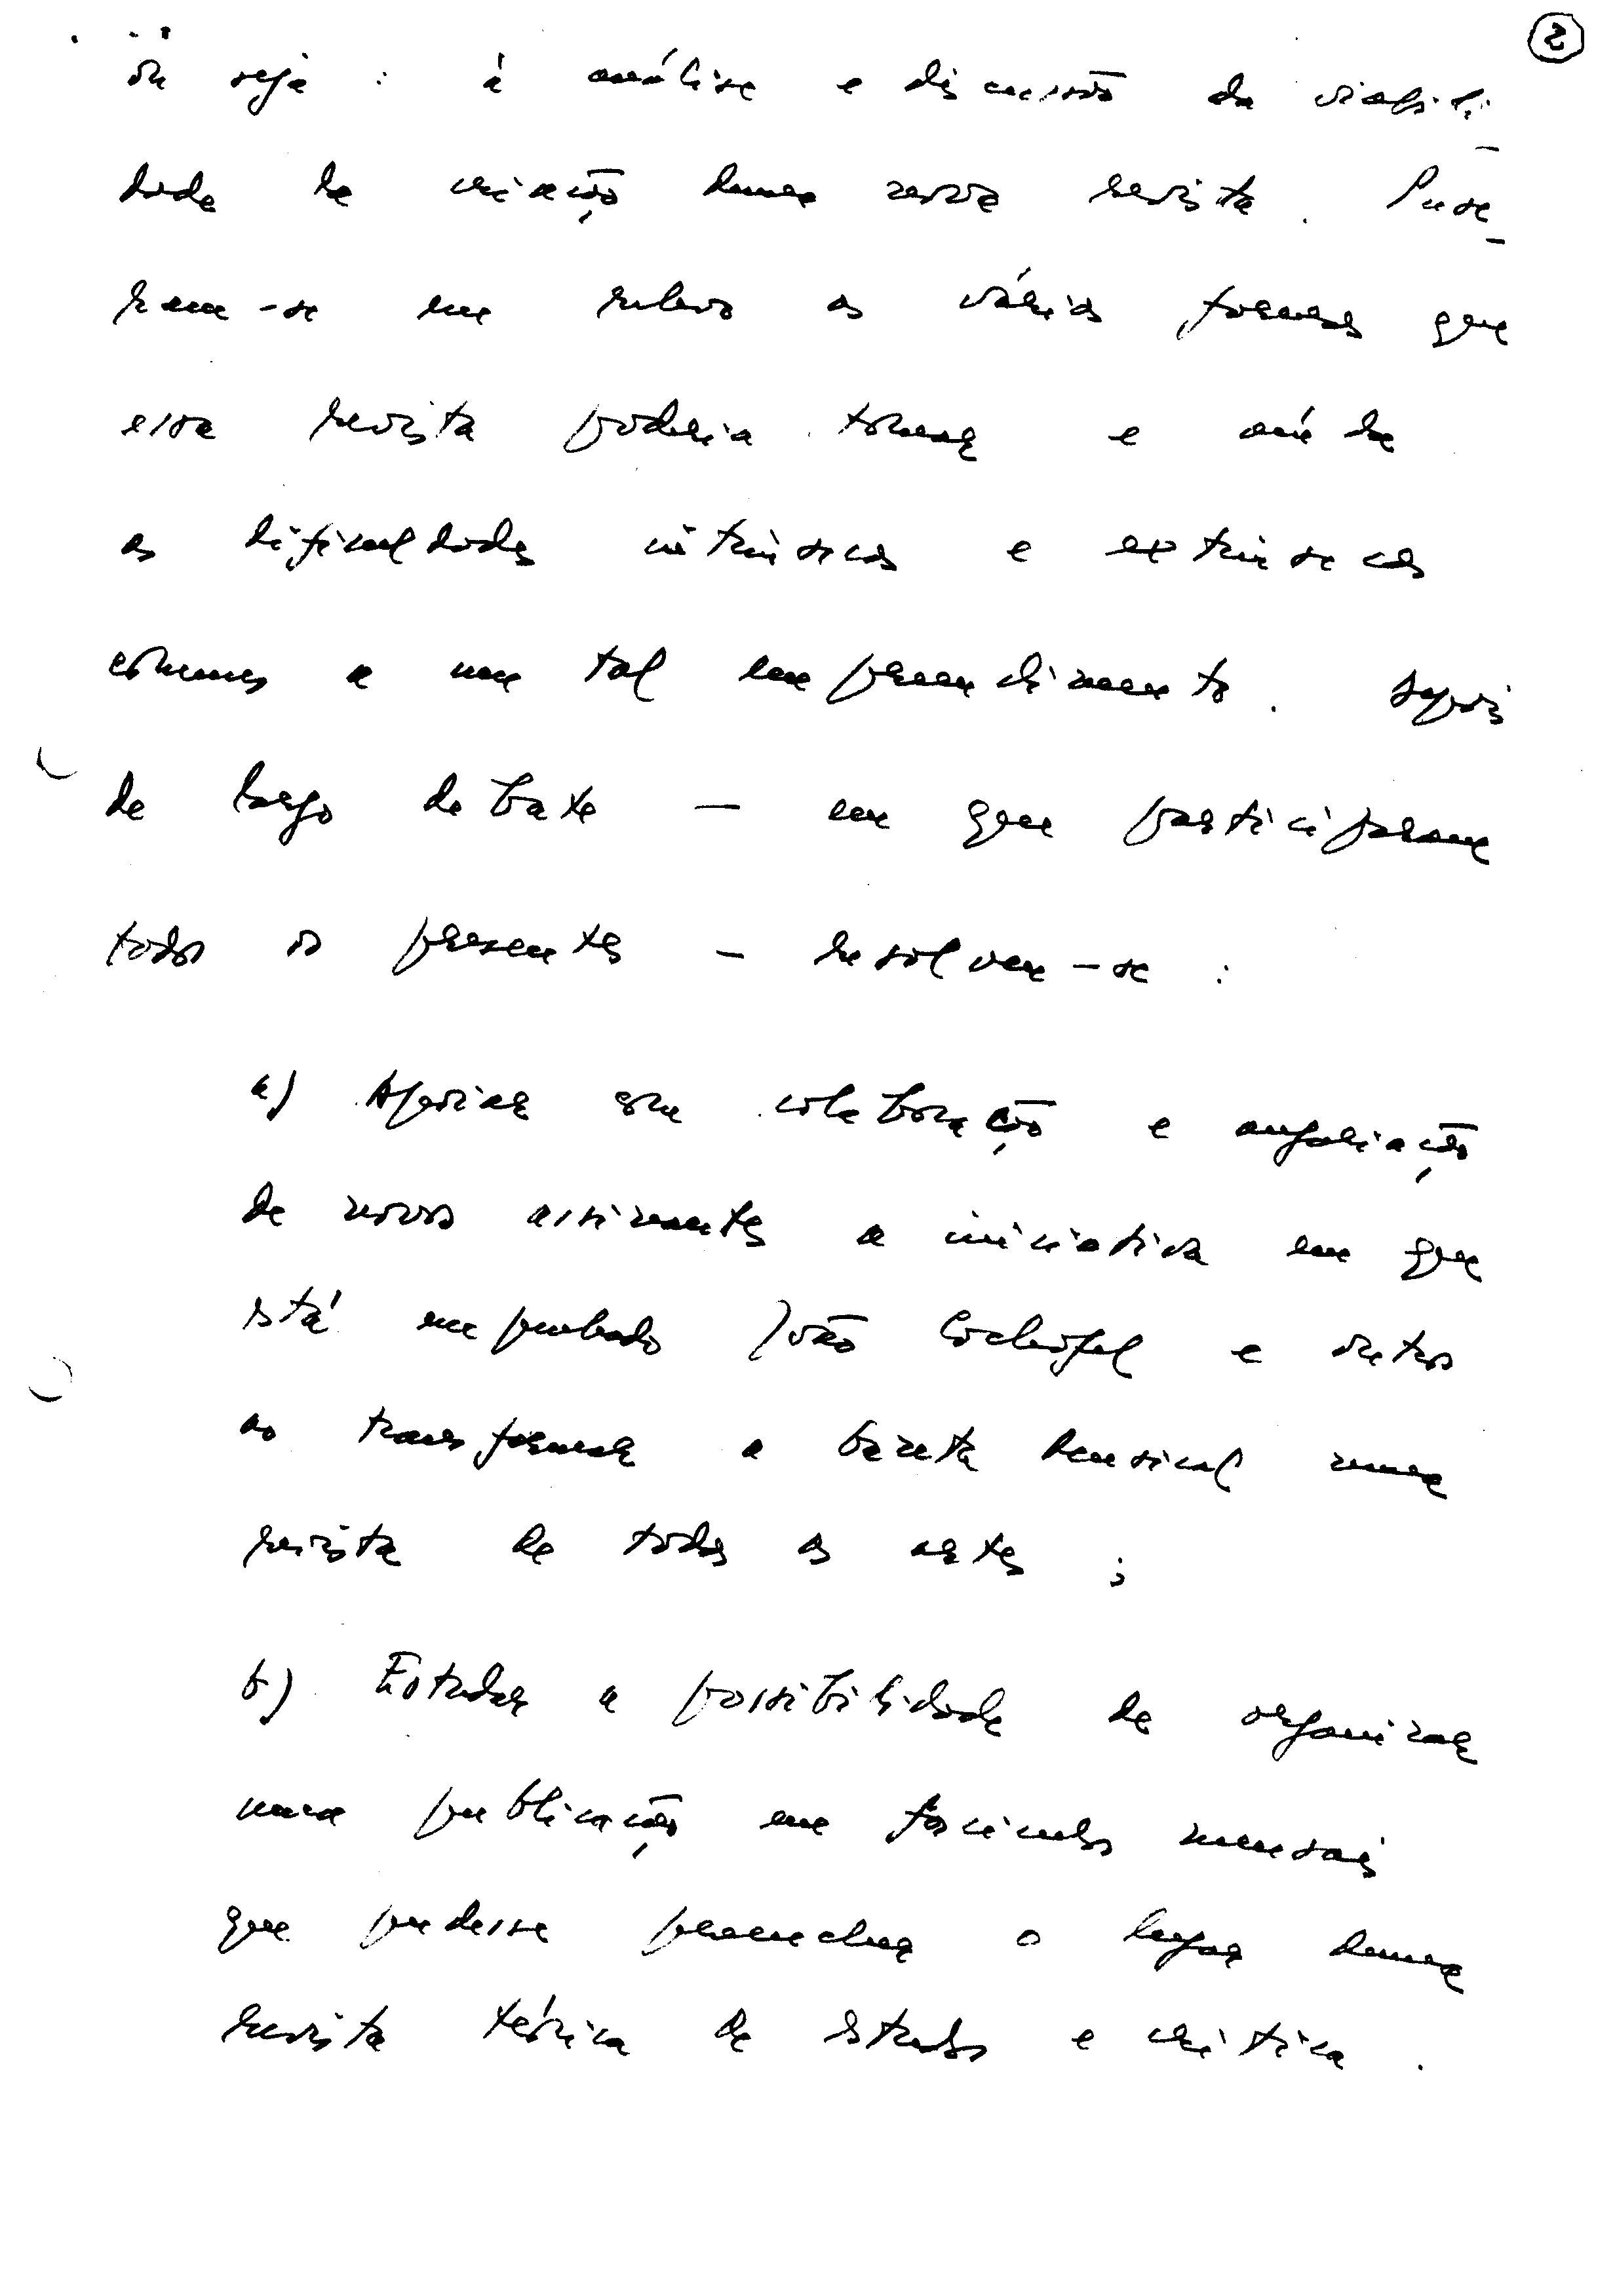 2
ou seja : à análise e discussão da viabili-
dade de criação duma nova revista. Puse-
ram-se em relevo as várias formas que
essa revista poderia tomar e ainda
as dificuldades intrínsecas e extrínsecas
comuns a um tal empreendimento. Depois
de largo debate — em que participaram
todos os presentes — resolveu-se :
a) Apoiar com colaboração e angariação
de novos assinantes a iniciativa em que
está empenhado João Cochofel e outros
ao transformar a Gazeta Musical numa
revista de todas as artes ;
b) Estudar a possibilidade de organizar
uma publicação em fascículos mensais
que pudesse preencher o lugar duma
revista teórica de estudos e crítica .